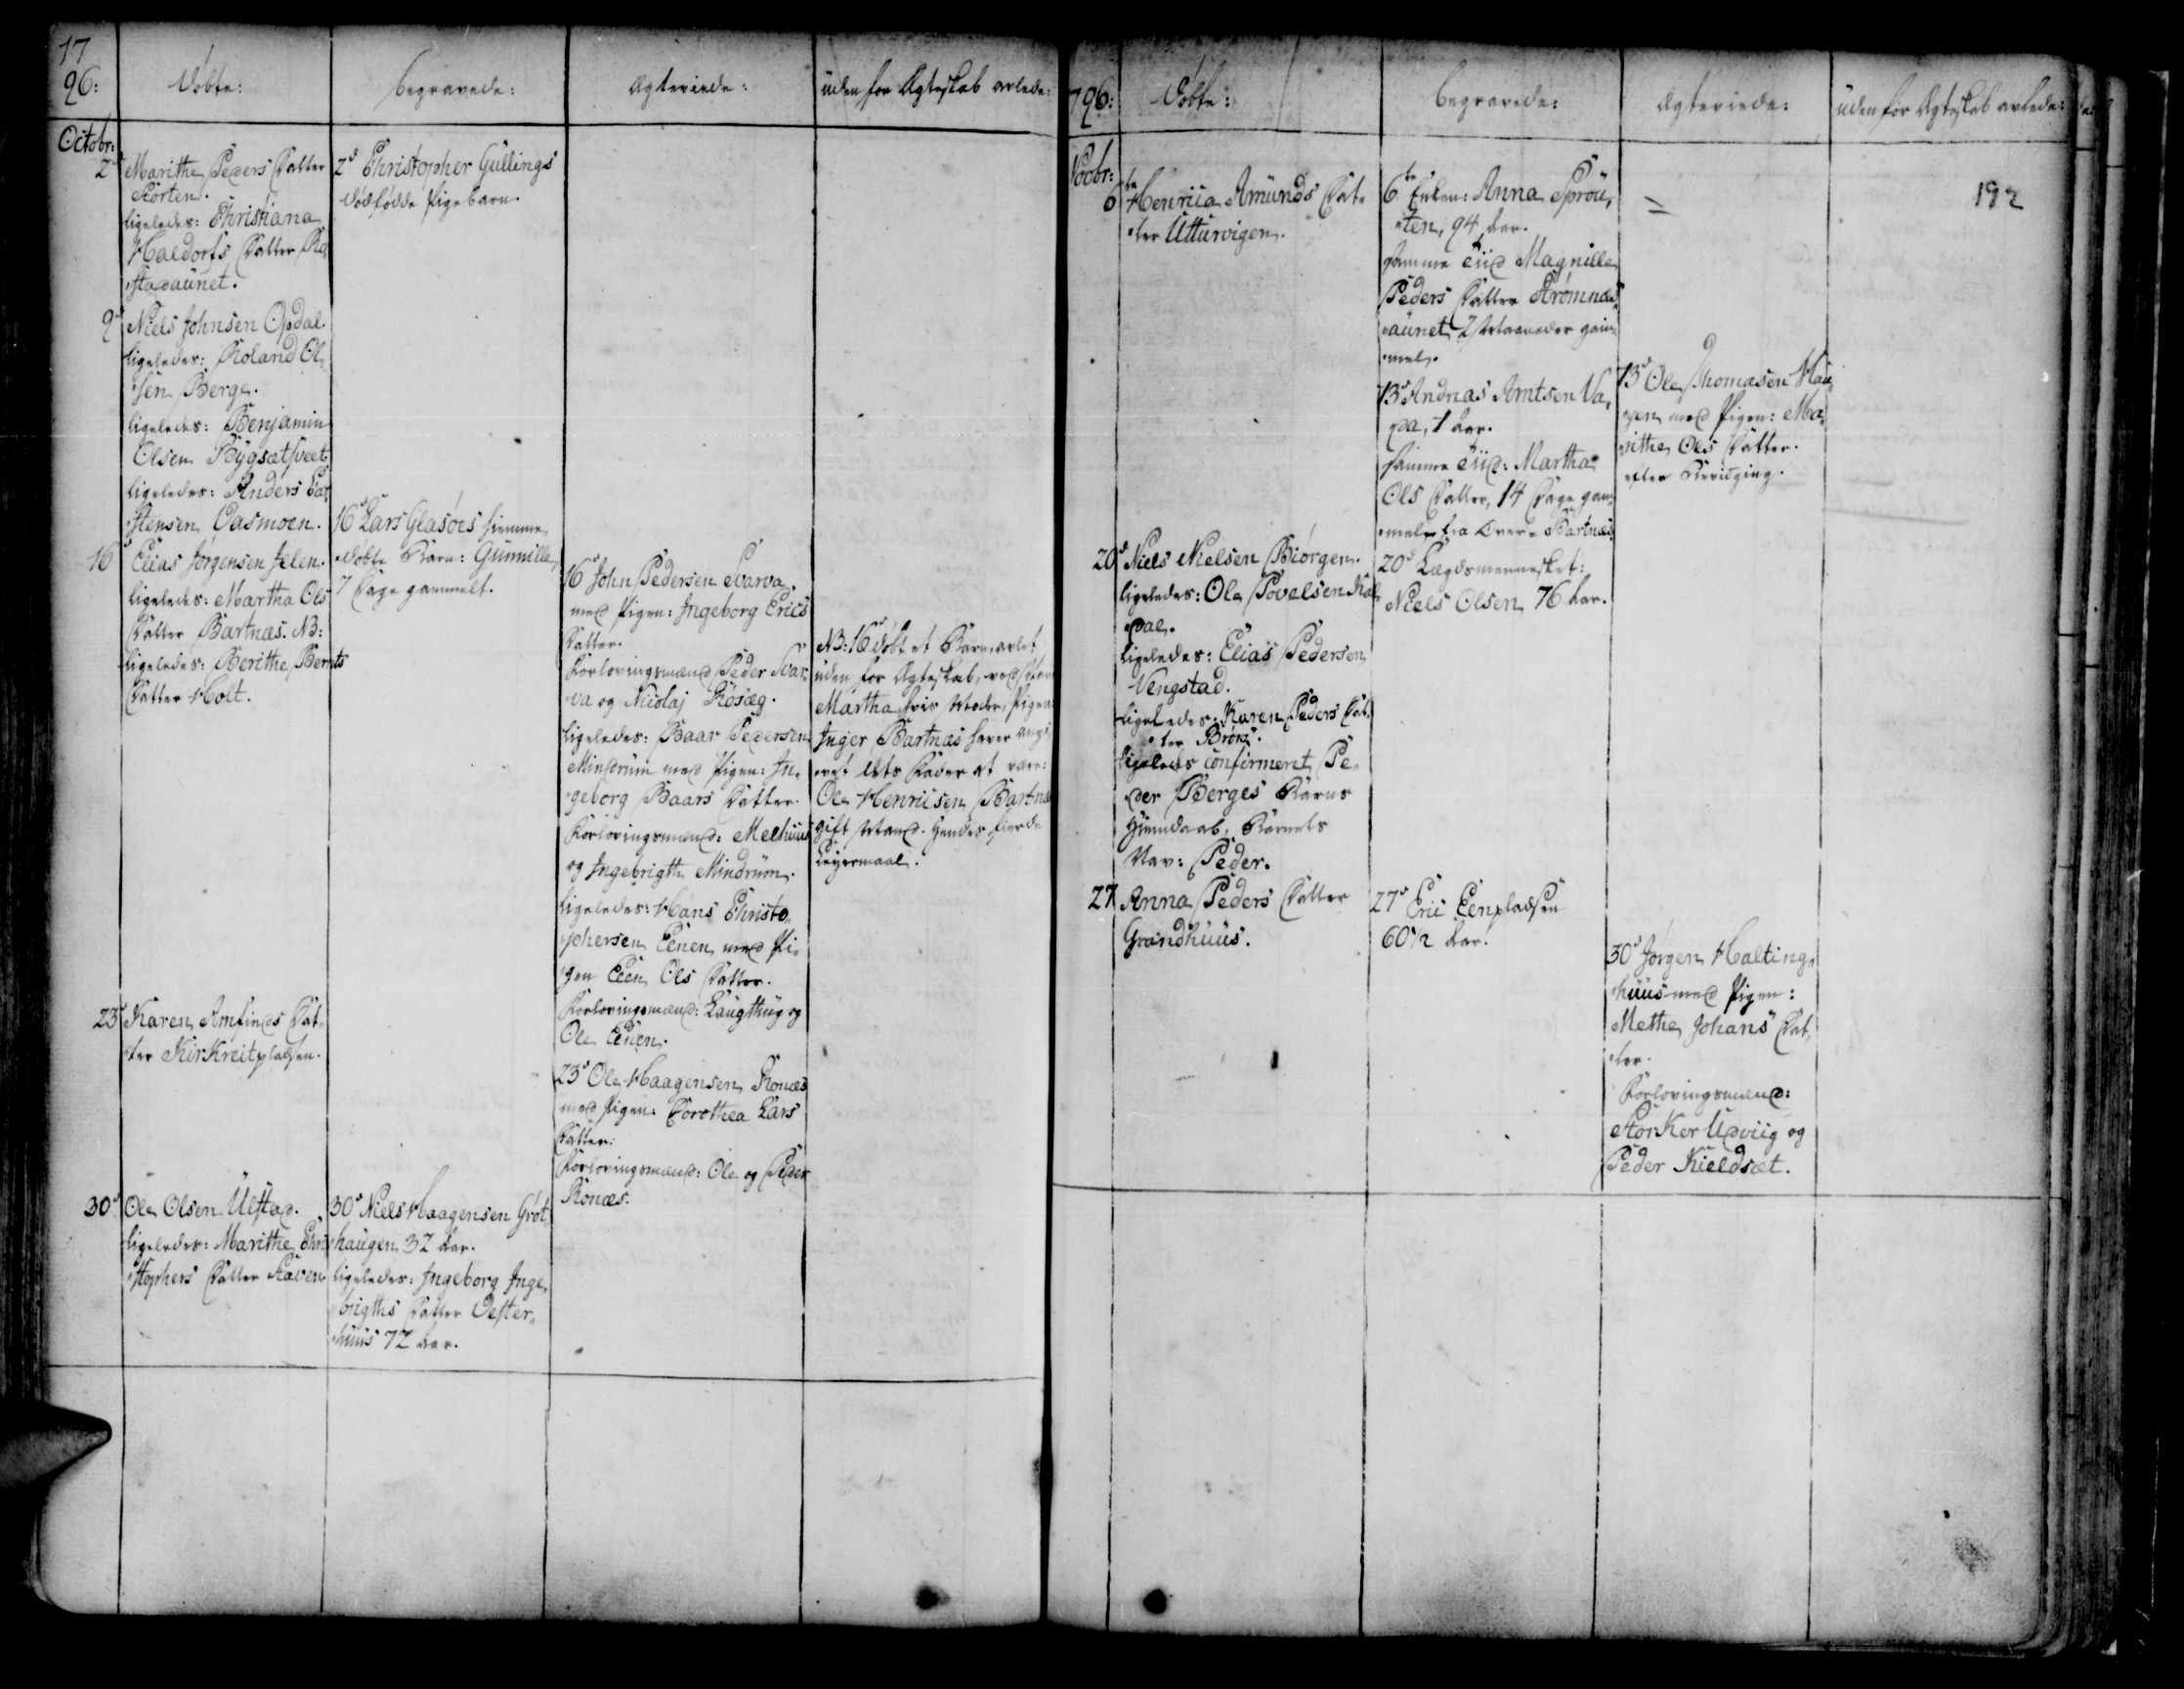 17
96:
Døbte:
begravede:
Ægteviede:
uden for Ægteskab avlede:
Octobr:
2d Marithe Peders Datter
Storten.
ligeledes: Christiana
Haldorfs Datter Ra,
stadaunet.
9d Niels Johnsen Opdal.
ligeledes: Roland Ol,
sen Berge.
ligeledes: Benjamin
Olsen Bygsætsveet
ligeledes: Anders Car,
stensen Oasmoen.
16 Elias Jørgensen Jelen.
ligeledes: Martha Ols
Datter Bartnæs. NB:
ligeledes: Berithe Bernts
Datter Holt.
23d Karen Arnfinds Dat,
ter Kirkreitpladsen.
30d Ole Olsen Ulstad.
ligeledes: Marithe Chri
stophers Datter Staven
2d Christopher Gullings
dødfødde Pigebarn.
16d Lars Glasoes hiemme,
døbte Barn: Gunnille,
7 Dage gammelt.
30d Niels Haagensen Grøt
haugen 32 Aar.
ligeledes: Ingeborg Inge,
brigths Datter Oester,
huus 72 Aar.
16d John Pedersen Svarva
med Pigen: Ingeborg Erics
Datter.
Forlovingsmænd Peder Svar,
va og Nicolaj Røsæg.
ligeledes: Baar Pedersen
Mindrum med Pigen: In,
geborg Baars Datter.
Forlovingsmænd: Melhuus
og Ingebrigth Mindrum.
ligeledes: Hans Christo,
phersen Eenen med Pi,
gen Eeen Ols Datter.
Forlovingsmænd: Laugthug og
Ole Eenen.
23d Ole Haagensen Ronæs
med Pigen: Dorothea Lars
Datter:
Forlovingsmænd: Ole og Peder
Ronæs.
NB: 16d døbt et Barn avlet
uden for Ægteskab, ved
Martha, hvis Moder, Pigen
Inger Bartnæs haver angi,
vet dets Fader at være:
Ole Henricsen Bartnæs
gift Mand. Hendes fierde
Leyermaal.
796:
Døbte:
begravede:
Ægteviede:
uden for Ægteskab avlede:
192
Nocbr:
6te Henrica Amunds Dat,
ter Utturvigen.
20d Niels Nielsen Biørgen.
ligeledes: Ole Povelsen Kal,
dal.
ligeledes: Elias Pedersen
Vengstad.
ligeledes: Karen Peders Dat,
ter Brøns.
ligeledes confirmeret Pe,
der Berges Barns
Hjemdaab, Barnets
Nav: Peder.
27 Anna Peders Datter
Grandhuus.
6te Enken: Anna Sprou,
ten, 94 Aar.
samme Tiid Magnille
Peders Datter Strømnæs,
aunet, 2 Maaneder gam,
mel.
13d Andreas Arntsen Va,
da, 1 Aar.
samme Tiid: Martha
Ols Datter, 14 Dage gam,
mel fra Over-Bartnæs
20d Lægdsmennesket:
Niels Olsen 76 Aar.
27d Eric Eenpladsen
60 1/2 Aar.
13d Ole Thomasen Hau,
gen med Pigen: Ma,
rithe Ols Datter.
efter Bevilging.
30d Jørgen Halting,
huus med Pigen:
Methe Johans Dat,
ter.
Forlovingsmænd:
Storker Udviig og
Peder Kieldsæt.